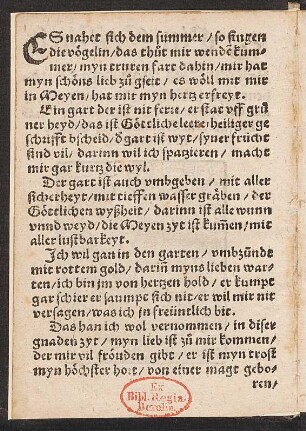 ES nahet sich dem summer / so singen
die vögelin / das thůt mir wendē kum-
mer / myn truren fart dahin / mir hat
myn schöns lieb zů gseit / es wöll mit mir
in Meyen / hat mir myn hertz erfreyt.
Ein gart der ist nit ferre / er stat vff grü
ner heyd / das ist Göttliche leere / heiliger ge
schrifft bscheid / d̕ gart ist wyt / syner frücht
sind vil / darinn wil ich spazieren / macht
mir gar kurtz die wyl.
Der gart ist auch vmbgeben / mit aller
sicherheyt / mit tieffen wasser gräben / der
Göttlichen wyßheit / darinn ist alle wunn
vnnd weyd / die Meyen zyt ist kum̄en / mit
aller lustbarkeyt.
Ich wil gan in den garten / vmbzündt
mit rottem gold / dariñ myns lieben war-
ten / ich bin jm von hertzen hold / er kumpt
gar schier er saumpt sich nit / er wil mir nit
versagen / was ich jn freüntlich bit.
Das han ich wol vernommen / in diser
gnaden zyt / myn lieb ist zů mir kommen /
der mir vil fröuden gibt / er ist myn trost
myn höchster hort / von einer magt gebo-
ren /
Ex
Bibl. Regia
Berolin.